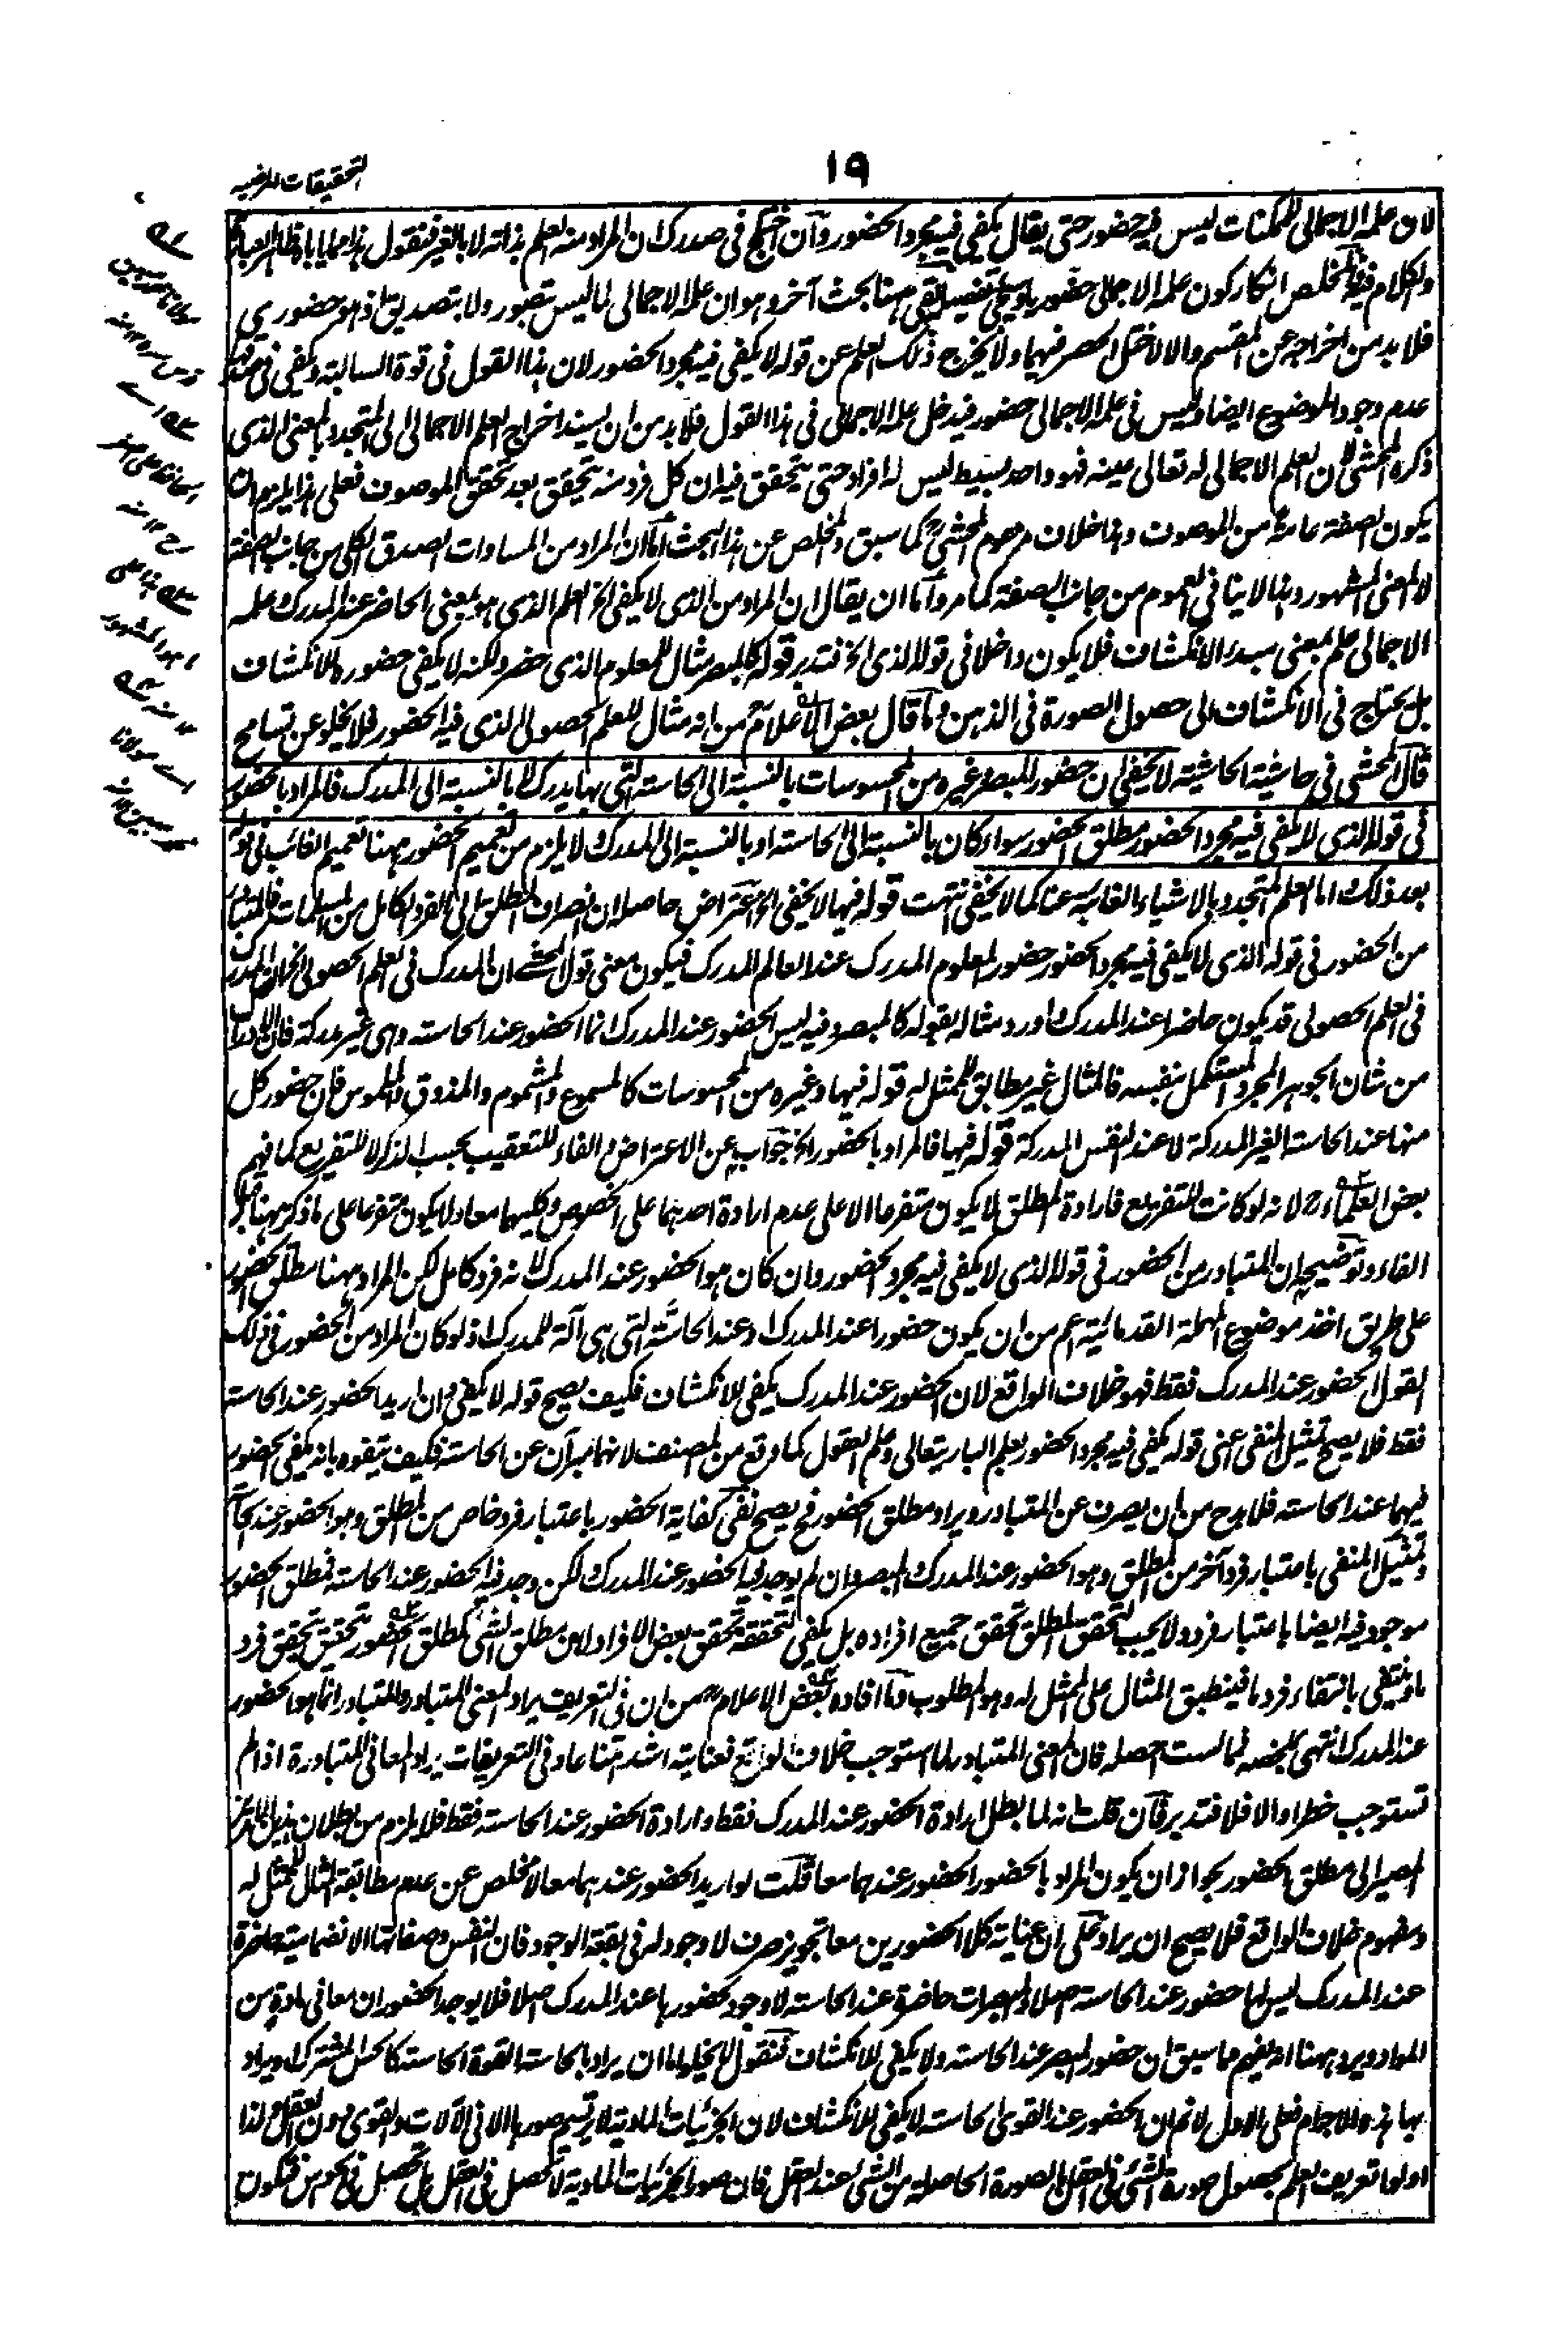 ١٩
التحقيقات المرضيه
لان علمه الاجمالى للممكنات ليس فيه حضور حتى يقال يكفى فيه مجرد الحضور وآن اختلج فى صدرك ان المراد منه العلم بذاته لا بالغير فنقول هذا مما ياباه ظاهر العبارة
والكلام فيه المخلص انكار كون علمه الاجمالى حضوريا بقى ههنا بحث آخر وهو ان علمه الاجمالى لما ليس بتصور ولا بتصديق اذ هو حضورى
فلا بد من اخراجه عن المقسم والا لاختل الحصر فيهما ولا يخرج ذلك العلم عن قوله لا يكفى فيه مجرد الحضور لان هذا القول فى قوة السالبة ويكفى فى صدقها
عدم وجود الموضوع ايضا وليس فى علمه الاجمالى حضور فيدخل علمه الاجمالى فى هذا القول فلا بد من ان يسند اخراج العلم الاجمالى الى المتجدد بالمعنى الذى
ذكره المحشى لان العلم الاجمالى له تعالى عينه فهو واحد بسيط ليس له افراد حتى يتحقق فيه ان كل فرد منه يتحقق بعد تحقق الموصوف فعلى هذا يلزم ان
يكون الصفة عامة من الموصوف وهذا خلاف مرعوم المحشى كما سبق والمخلص عن هذا البحث اما ان المراد من المساوات الصدق الكلى من جانب الصفة
لا المعنى المشهور وهذا لا ينافى العموم من جانب الصفة كما مر وآما ان يقال ان المراد من الذى لا يكفى الخ العلم الذى هو بمعنى الحاضر عند المدرك علمه
الاجمالى علم بمعنى مبدء الانكشاف فلا يكون داخلا فى قوله الذى الخ فتدبر قوله كالمبصر مثال للمعلوم الذى حضر ولكنه لا يكفى حضوره للانكشاف
بل يحتاج فى الانكشاف الى حصول الصورة فى الذهن وما قال بعض الاعلام من انه مثال للعلم الحصولى الذى فيه الحضور فلا يخلو عن تسامح
قال المحشى فى حاشية الحاشية لا يخفى ان حضور المبصر وغيره من المحسوسات بالنسبة الى الحاسة التى بها يدرك لا بالنسبة الى المدرك فالمراد بالحضور
فى قوله الذى لا يكفى فيه مجرد الحضور مطلق الحضور سواء كان بالنسبة الى الحاسة او بالنسبة الى المدرك لا يلزم من تعميم الحضور ههنا تعميم الغائب فى قوله
بعد ذلك اما العلم المتجدد بالاشياء الغائبة عنا كما لا يخفى انتهت قوله فيها لا يخفى الخ اعتراض حاصله ان انصراف المطلق الى الفرد الكامل من المسلمات فالمتبادر
من الحضور فى قوله الذى لا يكفى فيه مجرد الحضور حضور المعلوم المدرك عند العالم المدرك فيكون معنى قول المحشى ان المدرك فى العلم الحصولى
فى العلم الحصولى قد يكون حاضرا عند المدرك اورد مثاله بقوله كالمبصر وفيه ليس الحضور عند المدرك انما الحضور عند الحاسة وهى غير مدركة فان الادراك
من شان الجوهر المجرد المستكمل بنفسه فالمثال غير مطابق للممثل له قوله فيها وغيره من المحسوسات كالمسموع والمشموم والمذوق والملموس فان حضور كل
منها عند الحاسة الغير المدركة لا عند النفس المدركة قوله فيها فالمراد بالحضور الخ جواب عن الاعتراض والفاء للتعقيب بحسب الذكر لا للتفريع كما فهم
بعض العلماء رح لانه لو كانت للتفريع فارادة المطلق لا يكون متفرعا الا على عدم ارادة احدهما على الخصوص وكليهما معا ولا يكون متفرعا على ما ذكر ههنا
الفاء وتوضيحه ان المتبادر من الحضور فى قوله الذى لا يكفى فيه مجرد الحضور وان كان هو الحضور عند المدرك لانه فرد كامل لكن المراد ههنا مطلق الحضور
على طريق اخذ موضوع المهملة القدمائية اعم من ان يكون حضورا عند المدرك او عند الحاسة التى هى آلة للمدرك اذ لو كان المراد من الحضور فى ذلك
القول الحضور عند المدرك فقط فهو خلاف الواقع لان الحضور عند المدرك يكفى للانكشاف فكيف يصح قوله لا يكفى وان اريد الحضور عند الحاسة
فقط فلا يصح تمثيل المنفى اعنى قوله يكفى فيه مجرد الحضور بعلم البارى تعالى وعلم العقول كما وقع من المصنف لانهما مبرآن عن الحاسة فكيف يتفوه بانه يكفى الحضور
فيهما عند الحاسة فلا بد ح من ان يصرف عن المتبادر ويراد مطلق الحضور فح يصح نفى كفاية الحضور باعتبار فرد خاص من المطلق وهو الحضور عند الحاسة
وتمثيل المنفى باعتبار فرد آخر من المطلق وهو الحضور عند المدرك والمبصر وان لم يوجد فيه الحضور عند المدرك لكن وجد فيه الحضور عند الحاسة فمطلق الحضور
موجود فيه ايضا باعتبار فرد ولا يجب لتحقق المطلق تحقق جميع افراده بل يكفى لتحققه تحقق بعض الافراد لان مطلق الشئ كمطلق الحضور يتحقق بتحقق فرد
ما وينتفى بانتفاء فرد ما فينطبق المثال على الممثل له وهو المطلوب وما افاده بعض الاعلام من ان فى التعريف يراد المعنى المتبادر والمتبادر انما هو الحضور
عند المدرك انتهى بملخصه فما لست احصله فان المعنى المتبادر لما استوجب خلاف الواقع فعنايته اشد شناعا وفى التعريفات يراد المعانى المتبادرة اذا لم
تستوجب خطرا والا فلا فتدبر فان قلت انه لما بطل ارادة الحضور عند المدرك فقط وارادة الحضور عند الحاسة فقط فلا يلزم من بطلان
المصير الى مطلق الحضور بجواز ان يكون المراد بالحضور الحضور عندهما معا قلت لو اريد الحضور عندهما معا لا مخلص عن عدم مطابقة المثال للممثل له
ومفهوم خلاف الواقع فلا يصح ان يراد على ان عناية كلا الحضورين معا تجويز صرف لا وجود له فى بقعة الوجود فان النفس وصفاتها الانضمامية حاضرة
عند المدرك ليس لها حضور عند الحاسة اصلا والمبصرات حاضرة عند الحاسة لا وجود لحضورها عند المدرك اصلا فلا يوجد الحضوران معا فى مادة من
المواد ويرد ههنا انه يفهم مما سبق ان حضور المبصر عند الحاسة ولا يكفى للانكشاف فنقول لا يخلو اما ان يراد بالحاسة القوة الحاسة كالحس المشترك او يراد
بها هذه الاجرام فعلى الاول لا نم ان الحضور عند القوى الحاسة لا يكفى للانكشاف لان الجزئيات المادية لا يرتسم صورها الا فى الآلات والقوى دون العقل ولذا
اولوا تعريف العلم بحصول صورة الشئ فى العقل بالصورة الحاصلة من الشئ عند العقل فان صور الجزئيات المادية لا تحصل فى العقل بل تحصل فى الحواس فتكون